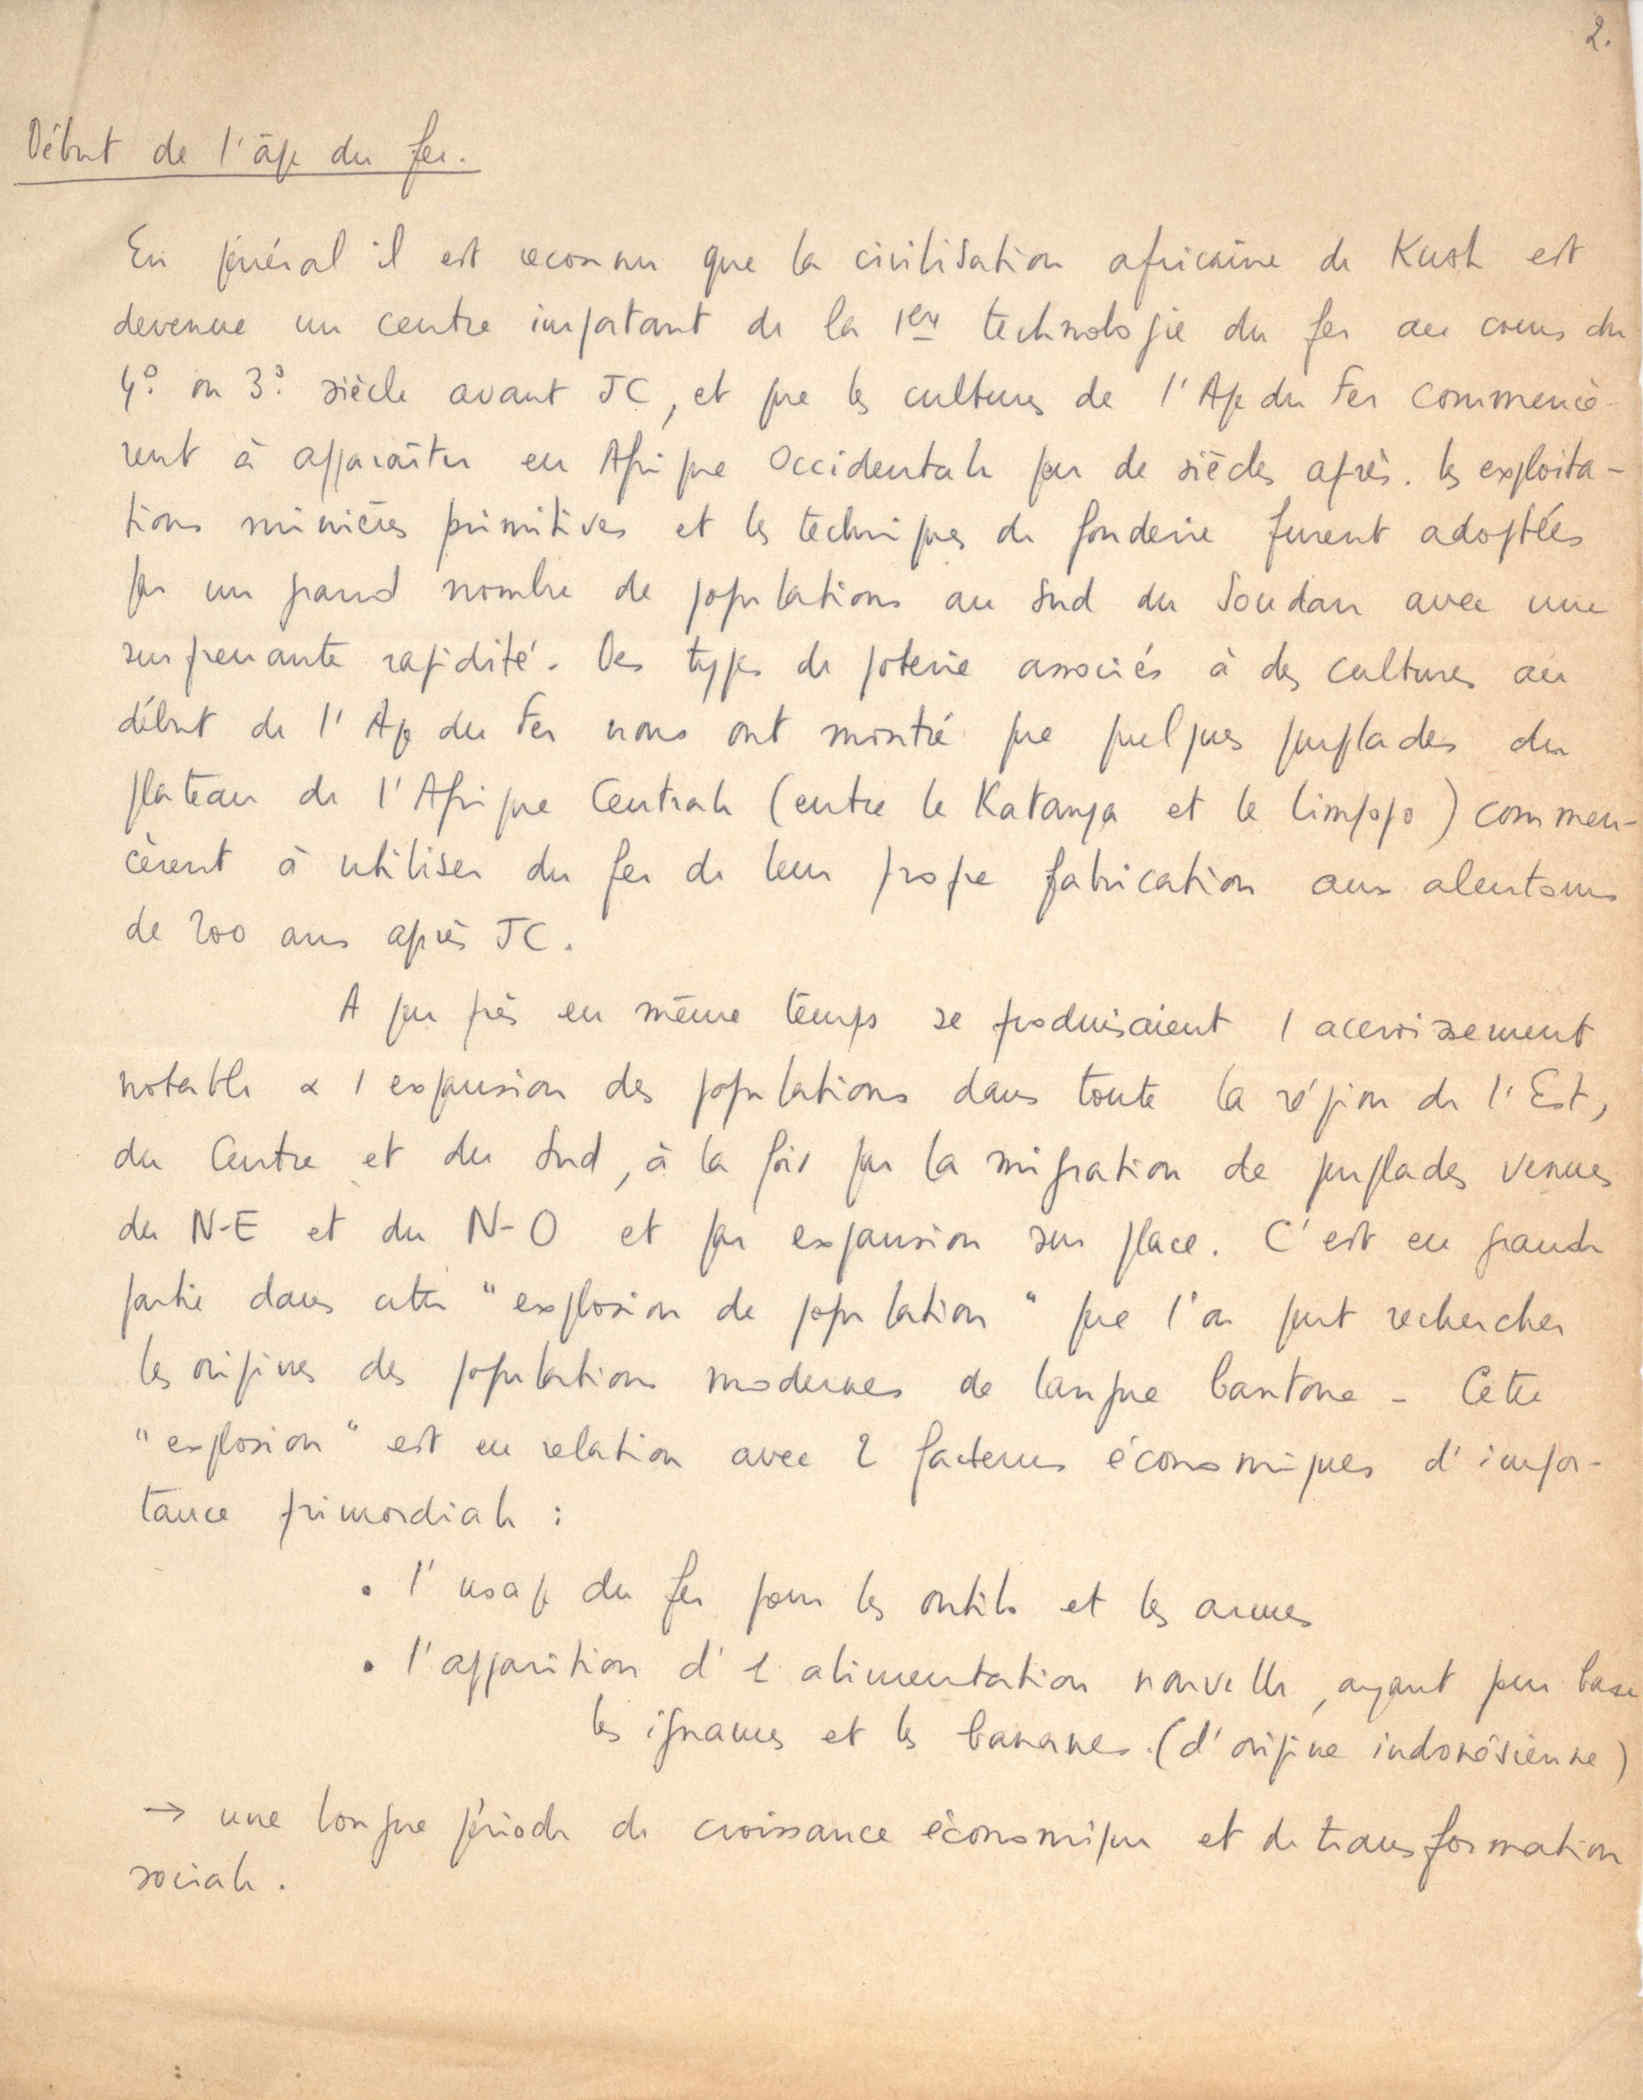 2.
Début de l'âge du fer.
En général il est reconnu que la civilisation africaine de Kush est
devenue un centre important de la 1ère technologie du fer au cours du
4° ou 3° siècle avant JC, et que les cultures de l'Age du Fer commencè-
rent à apparaître en Afrique Occidentale peu de siècles après. les exploita-
tions minières primitives et les techniques de fonderie furent adoptées
par un grand nombre de populations au Sud du Soudan avec une
surprenante rapidité. Des types de poterie associés à des cultures au
début de l'Age du Fer nous ont montré que quelques peuplades du
plateau de l'Afrique Centrale (entre le Katanga et le Limpopo) commen-
cèrent à utiliser du fer de leur propre fabrication aux alentours
de 200 ans après JC.
A peu près en même temps se produisaient 1 accroissement
notable & 1 expansion des populations dans toute la région de l'Est,
du Centre et du Sud, à la fois par la migration de peuplades venues
du N-E et du N-O et par expansion sur place. C'est en grande
partie dans cette "explosion de population" que l'on peut rechercher
les origines des populations modernes de langue bantoue - Cette
"explosion" est en relation avec 2 facteurs économiques d'impor-
tance primordiale :
• l'usage du fer pour les outils et les armes
• l'apparition d'1 alimentation nouvelle, ayant pour base
les ignames et les bananes. (d'origine indonésienne)
→ une longue période de croissance économique et de transformation
sociale.